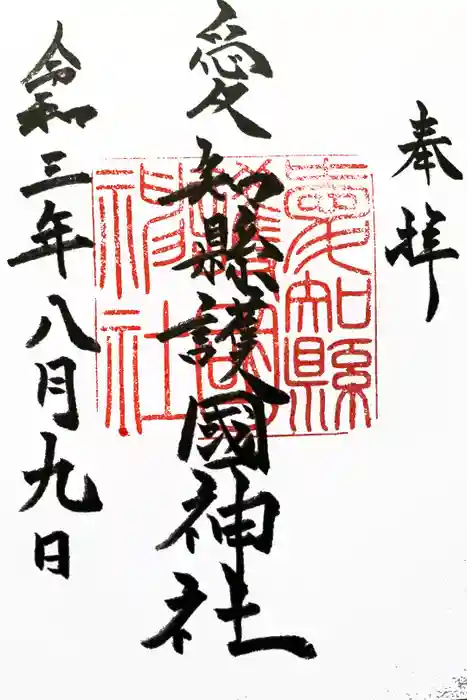 奉拝
愛知縣護國神社
令和三年八月九日
愛知縣
護國
神社